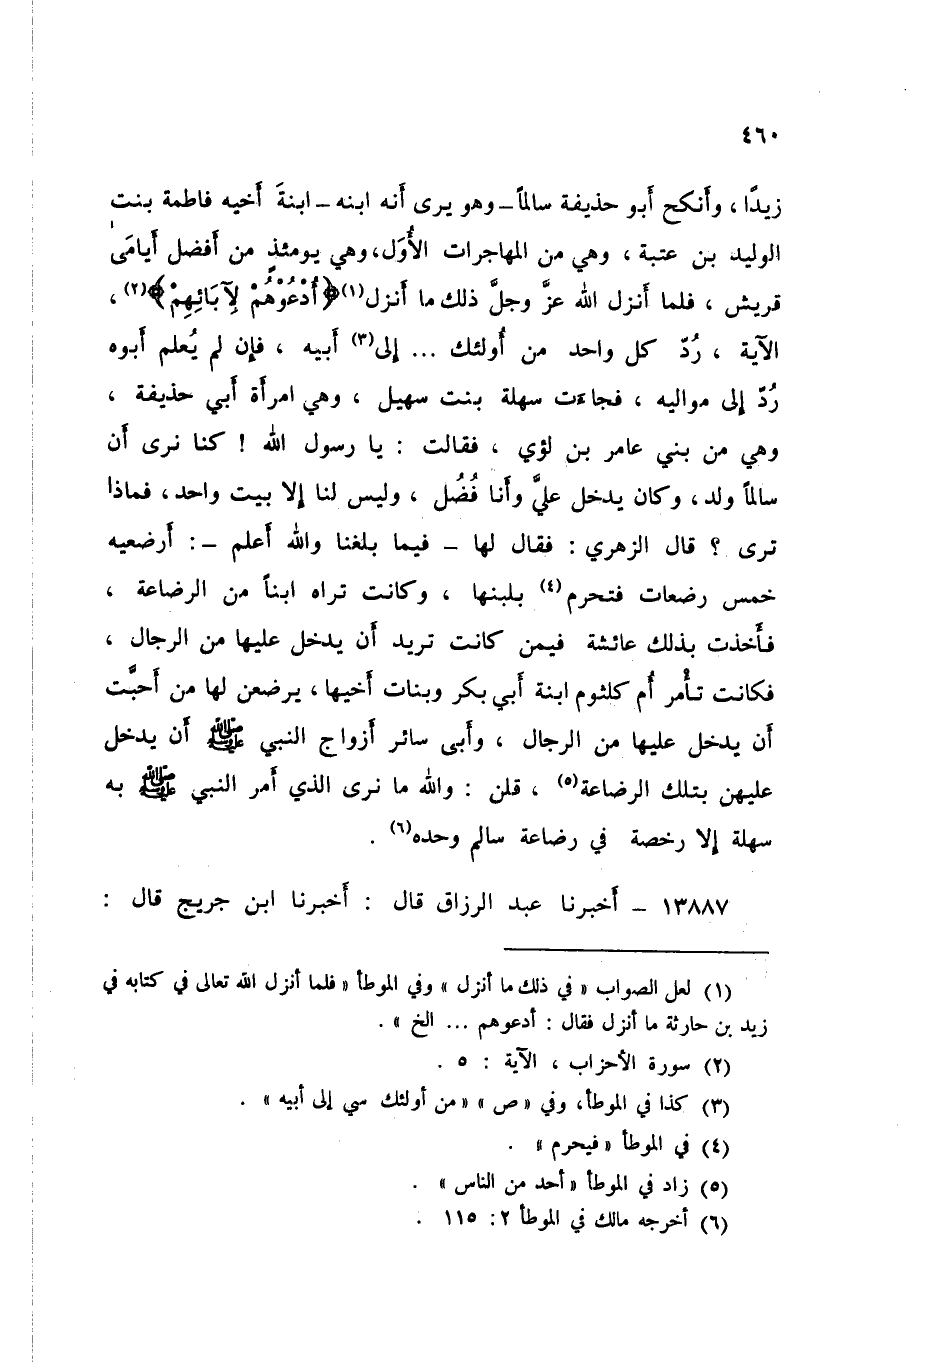 ٤٦٠
زيدًا ، وأَنكح أَبو حذيفة سالماً ــ وهو يرى أَنه ابنه ــ ابنةَ أَخيه فاطمة بنت
الوليد بن عتبة ، وهي من المهاجرات الأُوَل، وهي يومئذٍ من أَفضل أَيامَى
قريش ، فلما أَنزل الله عزَّ وجلَّ ذلك ما أَنزل(١) ﴿أُدْعُوْهُمْ لِآبَائِهِمْ﴾(٢) ،
الآية ، رُدّ كل واحد من أُولئك ... إِلى(٣) أَبيه ، فإِن لم يُعلم أَبوه
رُدّ إِلى مواليه ، فجاءَت سهلة بنت سهيل ، وهي امرأَة أَبي حذيفة ،
وهي من بني عامر بن لؤي ، فقالت : يا رسول الله ! كنا نرى أَن
سالماً ولد ، وكان يدخل عليَّ وأَنا فُضُل ، وليس لنا إِلا بيت واحد، فماذا
ترى ؟ قال الزهري : فقال لها ــ فيما بلغنا والله أَعلم ــ : أَرضعيه
خمس رضعات فتحرم(٤) بلبنها ، وكانت تراه ابناً من الرضاعة ،
فأَخذت بذلك عائشة فيمن كانت تريد أَن يدخل عليها من الرجال ،
فكانت تأْمر أُم كلثوم ابنة أَبي بكر وبنات أَخيها ، يرضعن لها من أَحبَّت
أَن يدخل عليها من الرجال ، وأَبى سائر أَزواج النبي ﷺ أَن يدخل
عليهن بتلك الرضاعة(٥) ، قلن : والله ما نرى الذي أَمر النبي ﷺ به
سهلة إِلا رخصة في رضاعة سالم وحده(٦) .
١٣٨٨٧ ــ أَخبرنا عبد الرزاق قال : أَخبرنا ابن جريج قال :
(١) لعل الصواب « في ذلك ما أنزل » وفي الموطأ « فلما أنزل الله تعالى في كتابه في
زيد بن حارثة ما أنزل فقال : أدعوهم ... الخ » .
(٢) سورة الأحزاب ، الآية : ٥ .
(٣) كذا في الموطأ، وفي « ص » « من أولئك سي إلى أبيه » .
(٤) في الموطأ « فيحرم » .
(٥) زاد في الموطأ « أحد من الناس » .
(٦) أخرجه مالك في الموطأ ٢ : ١١٥ .